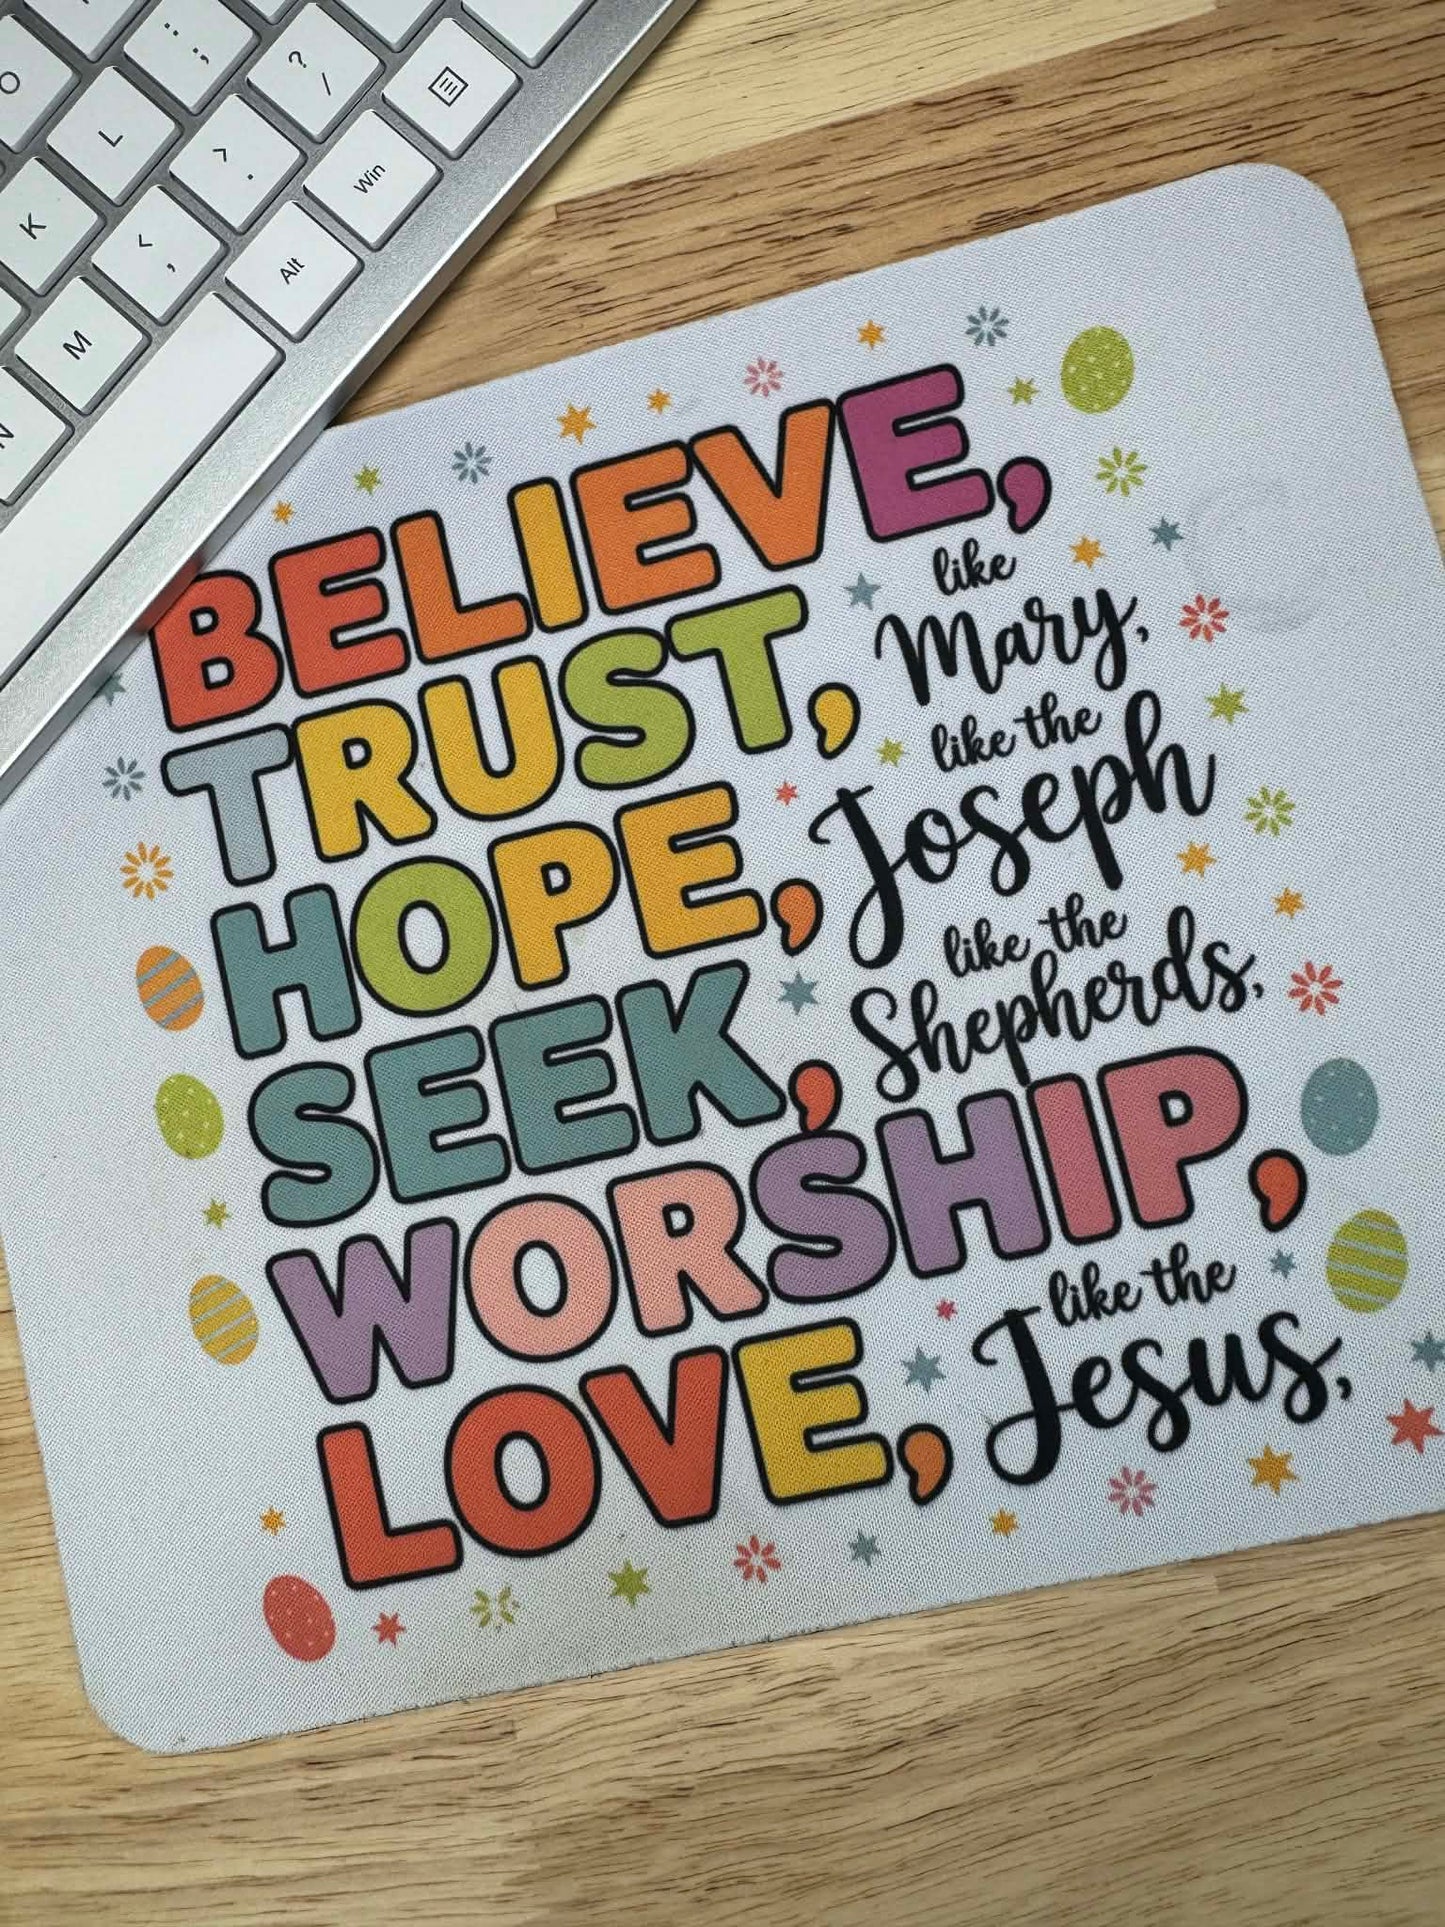 O
: ;
? /
L
> .
Win
K
< ,
Alt
M
N
BELIEVE,
like
Mary,
TRUST,
like the
Joseph
HOPE,
like the
Shepherds,
SEEK,
WORSHIP,
like the
LOVE,
Jesus,